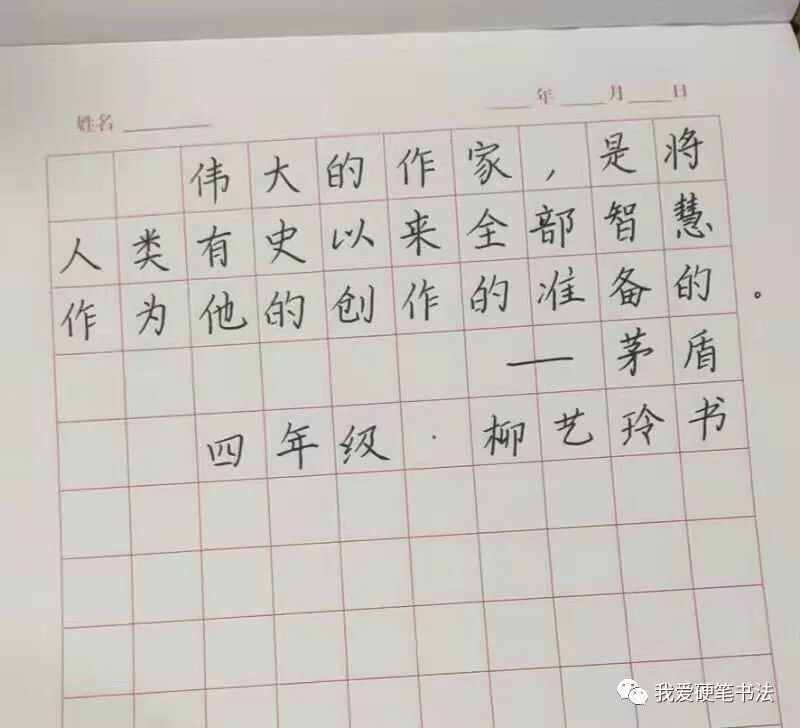 姓名 年 月 日
伟大的作家，是将
人类有史以来全部智慧
作为他的创作的准备的。
——茅盾
四年级·柳艺玲书
我爱硬笔书法